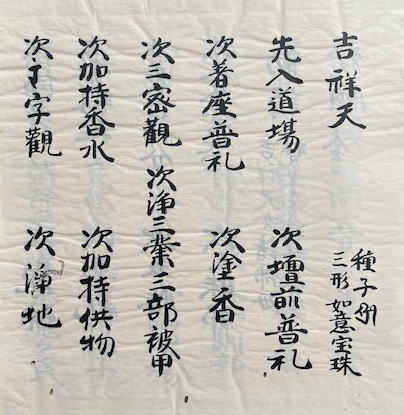 吉祥天 種子
三形 如意宝珠
先入道場 次壇前普礼
次著座普礼 次塗香
次三密觀 次浄三業三部被甲
次加持香水 次加持供物
次字觀 次浄地